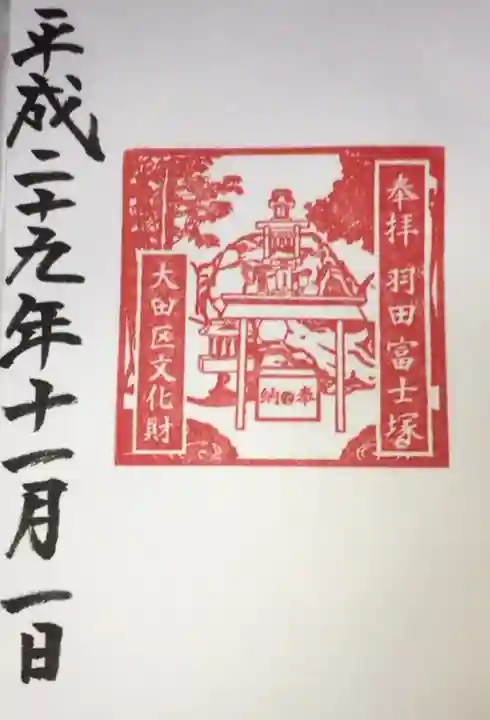 奉拝 羽田富士塚
大田区文化財
納奉
平成二十九年十一月一日